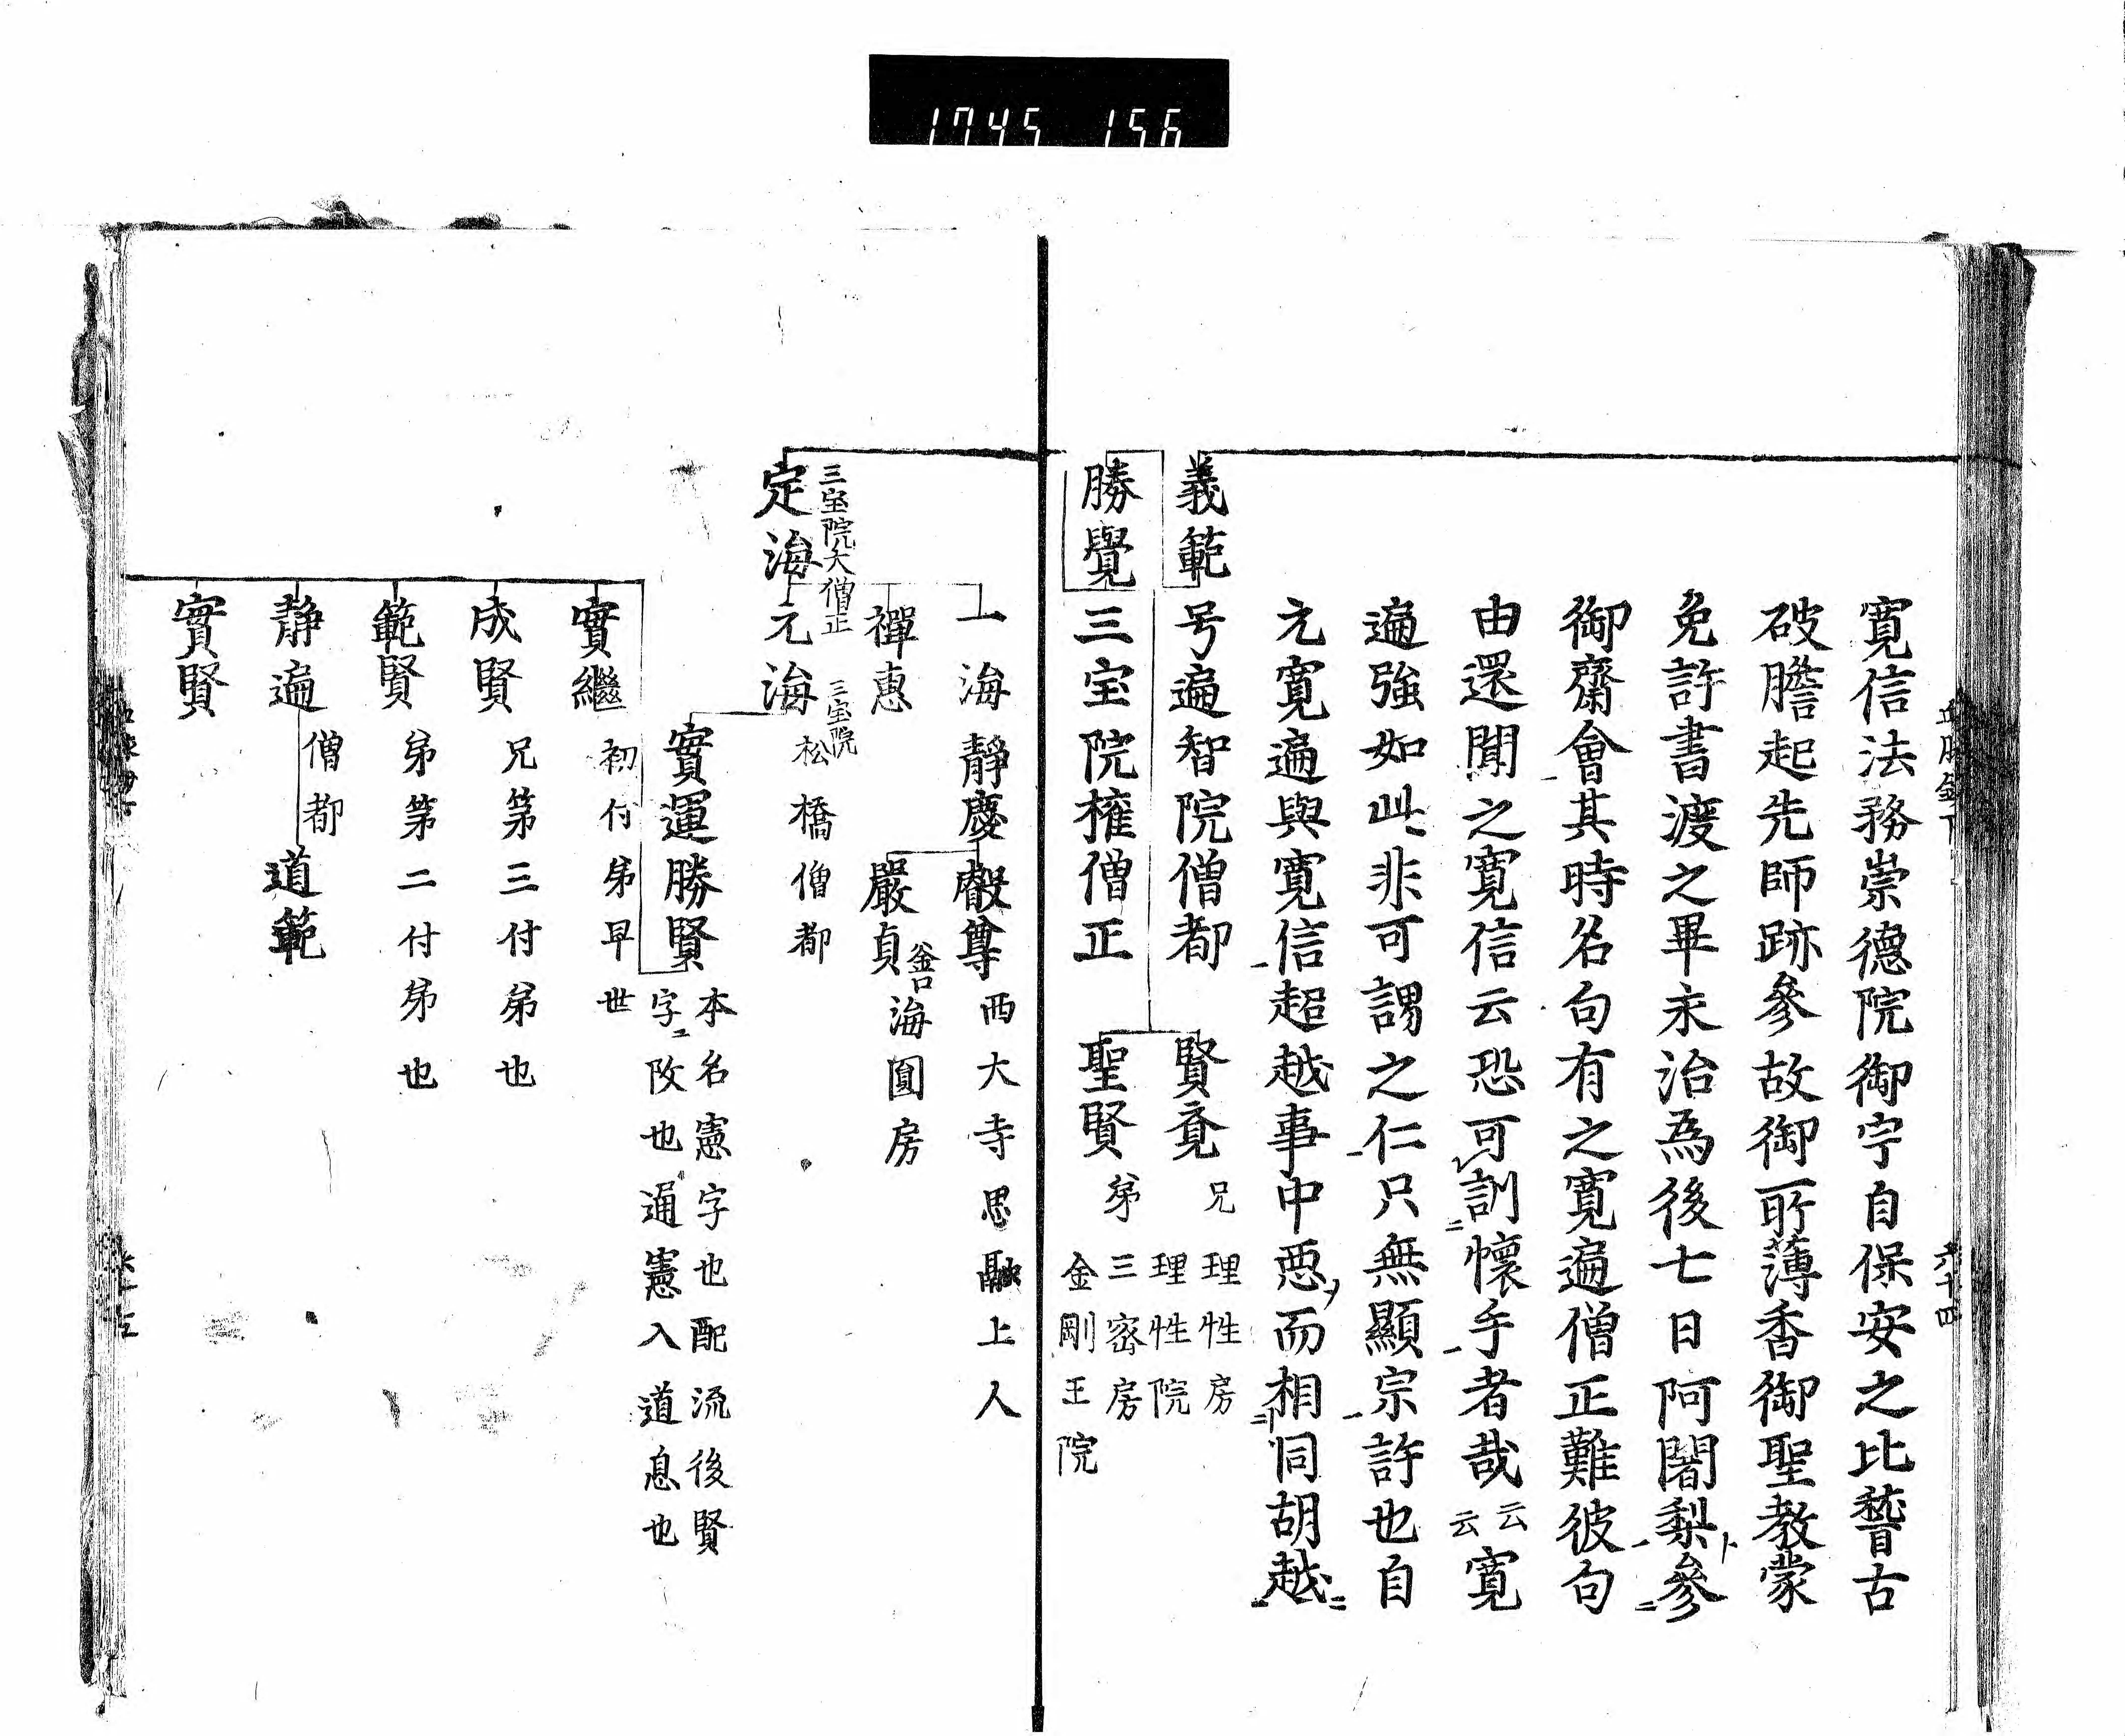 1745 156
六十四
寛信法務崇德院御宇自保安之比瞽古
破膽起先師跡參故御所薄香御聖教蒙
免許書渡之畢未治為後七日阿闍梨參
御齋會其時名句有之寛遍僧正難彼句
由還聞之寛信云恐可訓懷手者哉云云寛
遍強如此非可謂之仁只無顯宗許也自
元寛遍與寛信超越事中惡而相同胡越
義範 号遍智院僧都 賢覺 兄 理性房 理性院
勝覺 三宝院権僧正 聖賢 弟 三密房 金剛王院
一海 靜慶 叡尊 西大寺思融上人
禪惠 嚴貞 釜口 海圓房
三宝院大僧正 三宝院
定海 元海 松橋僧都
實運 勝賢 本名憲字也配流後賢
字ニ改也通憲入道息也
實繼 初付弟早世
成賢 兄第三付弟也
範賢 弟第二付弟也
静遍 僧都 道範
實賢